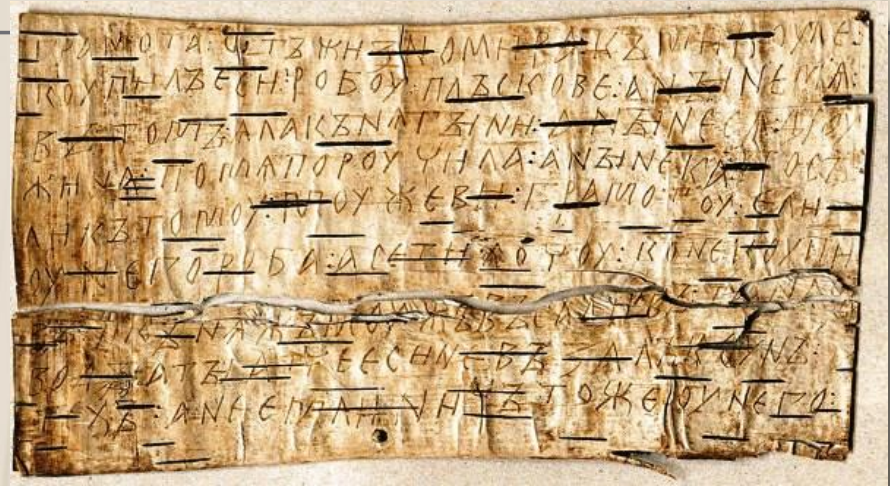 грамота : ѡтъ жизномира : къ микоуле :
коупилъ еси : робоу : плъскове : а ныне мѧ :
въ томъ : ѧла кънѧгыни : а ныне сѧ дроу
жина : по мѧ пороучила : а ныне ка : посъ
ли къ томоу : моужеви : грамотоу : е ли
оу него роба : а се ти хочоу : коне коупи
въ : и кънѧжъ моужъ въсадивъ : та на съ
воды : а ты атче еси не възалъ коунъ :
техъ : а не емли : ничъ тоже оу него :